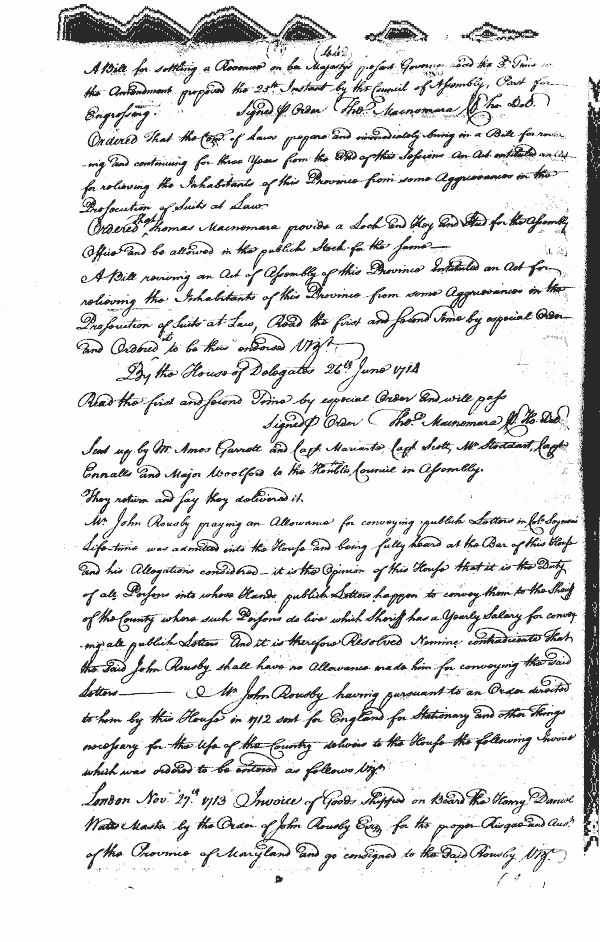 442
A Bill for settling a Revenue on her Majestys present Governor read the 3d Time
the Amendment proposed the 25th Instant by the Council of Assembly, Past for
Engrossing. Signed p Order Tho: Macnemara Cl Ho: Del.
Ordered That the Com of Laws prepare and immediately bring in a Bill for reviv
ing and continuing for three Years from the End of this Session An Act entituled an Act
for relieving the Inhabitants of this Province from some Aggrievances in the
Prosecution of Suits at Law
Ordered that Thomas Macnomara provide a Lock and Key and for the Assembly
Office and be allowed in the publick Stock for the same
A Bill reviving an Act of Assembly of this Province Instituled an Act for
relieving the Inhabitants of this Province from some Aggrievances in the
Prosecution of Suits at Law, Read the first and second time by especial Order
and Ordered it to be thus endorsed Vizt
By the House of Delegates 26th June 1714
Read the first and second Time by especial Order and will pass
Signed p Order Tho: Macnemara Cl Ho: Del
Sent up by Mr Amos Garrett and Capt Mariarte Capt Scott, Mr Stoddart, Capt
Ennalls and Major Woolford to the Honble Council in Assembly.
They return and say they delivered it.
Mr John Rousby praying an Allowance for conveying publick Letters in Col: Seymours
Life-time was admitted into the House and being fully heard at the Bar of this House
and his Allegations considered it is the Opinion of this House that it is the Duty
of all Persons into whose Hands publick Letters happen to convey them to the Sheriff
of the County where such Persons do live which Sheriff has a Yearly Salary for convey
ing all publick Letters And it is therefore Resolved Nemine contradicente that
the said John Rousby shall have no Allowance made him for conveying the said
Letters Mr John Rousby having pursuant to an Order directed
to him by this House in 1712 sent for England for Stationary and other Things
necessary for the Use of the Country delivers to the House the following Invoice
which was ordered to be entered as follows Vizt
London Nov: 27th 1713 Invoice of Goods Shipped on Board the Henry Daniel
Watts Master by the Order of John Rousby Esq for the proper Risque and Acct
of the Province of Maryland and go consigned to the said Rousby Vizt